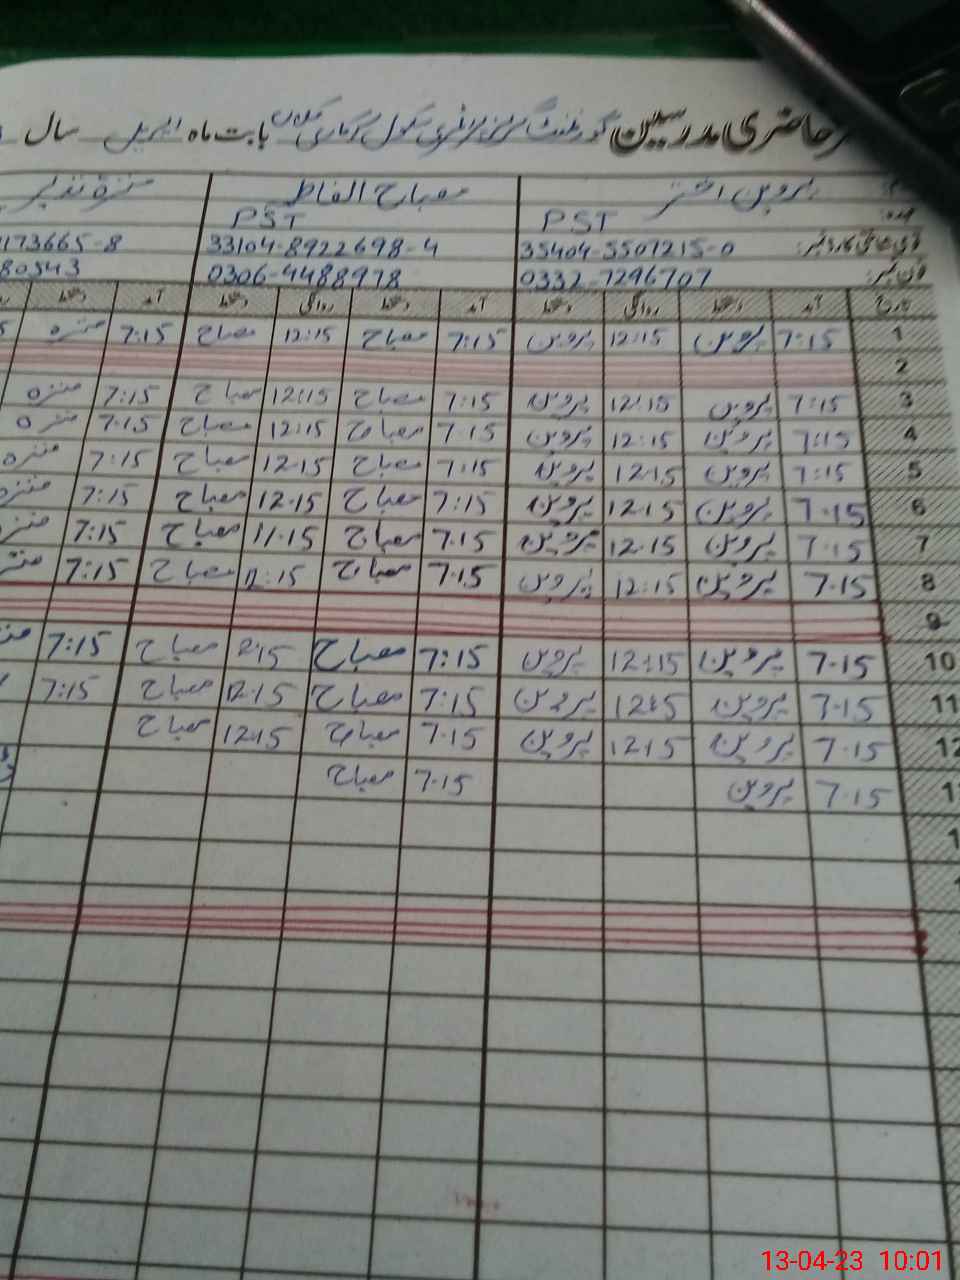 حاضری مدرسین گورنمنٹ گرلز پرائمری سکول بابت ماہ اپریل سال
پروین اختر مصباح الفاظ منزہ نذیر
عہدہ PST PST
قومی شناختی کارڈ نمبر: 35404-5507215-0 33104-8922698-4 173665-8
فون نمبر: 0332-7296707 0306-4488978 80543
تاریخ آمد دستخط روانگی دستخط آمد دستخط روانگی دستخط آمد دستخط
1 7:15 پروین 12:15 پروین 7:15 مصباح 12:15 مصباح 7:15 منزہ
2
3 7:15 پروین 12:15 پروین 7:15 مصباح 12:15 مصباح 7:15 منزہ
4 7:15 پروین 12:15 پروین 7.15 مصباح 12:15 مصباح 7.15 منزہ
5 7:15 پروین 12.15 پروین 7:15 مصباح 12.15 مصباح 7:15 منزہ
6 7.15 پروین 12.15 پروین 7:15 مصباح 12.15 مصباح 7:15 منزہ
7 7.15 پروین 12.15 پروین 7.15 مصباح 11.15 مصباح 7:15 منزہ
8 7.15 پروین 12:15 پروین 7.15 مصباح 12:15 مصباح 7:15
9
10 7.15 پروین 12:15 پروین 7:15 مصباح 12:15 مصباح 7:15
11 7.15 پروین 12:15 پروین 7:15 مصباح 12.15 مصباح 7:15
12 7.15 پروین 12.15 پروین 7.15 مصباح 12.15 مصباح
7.15 پروین 7.15 مصباح
13-04-23 10:01